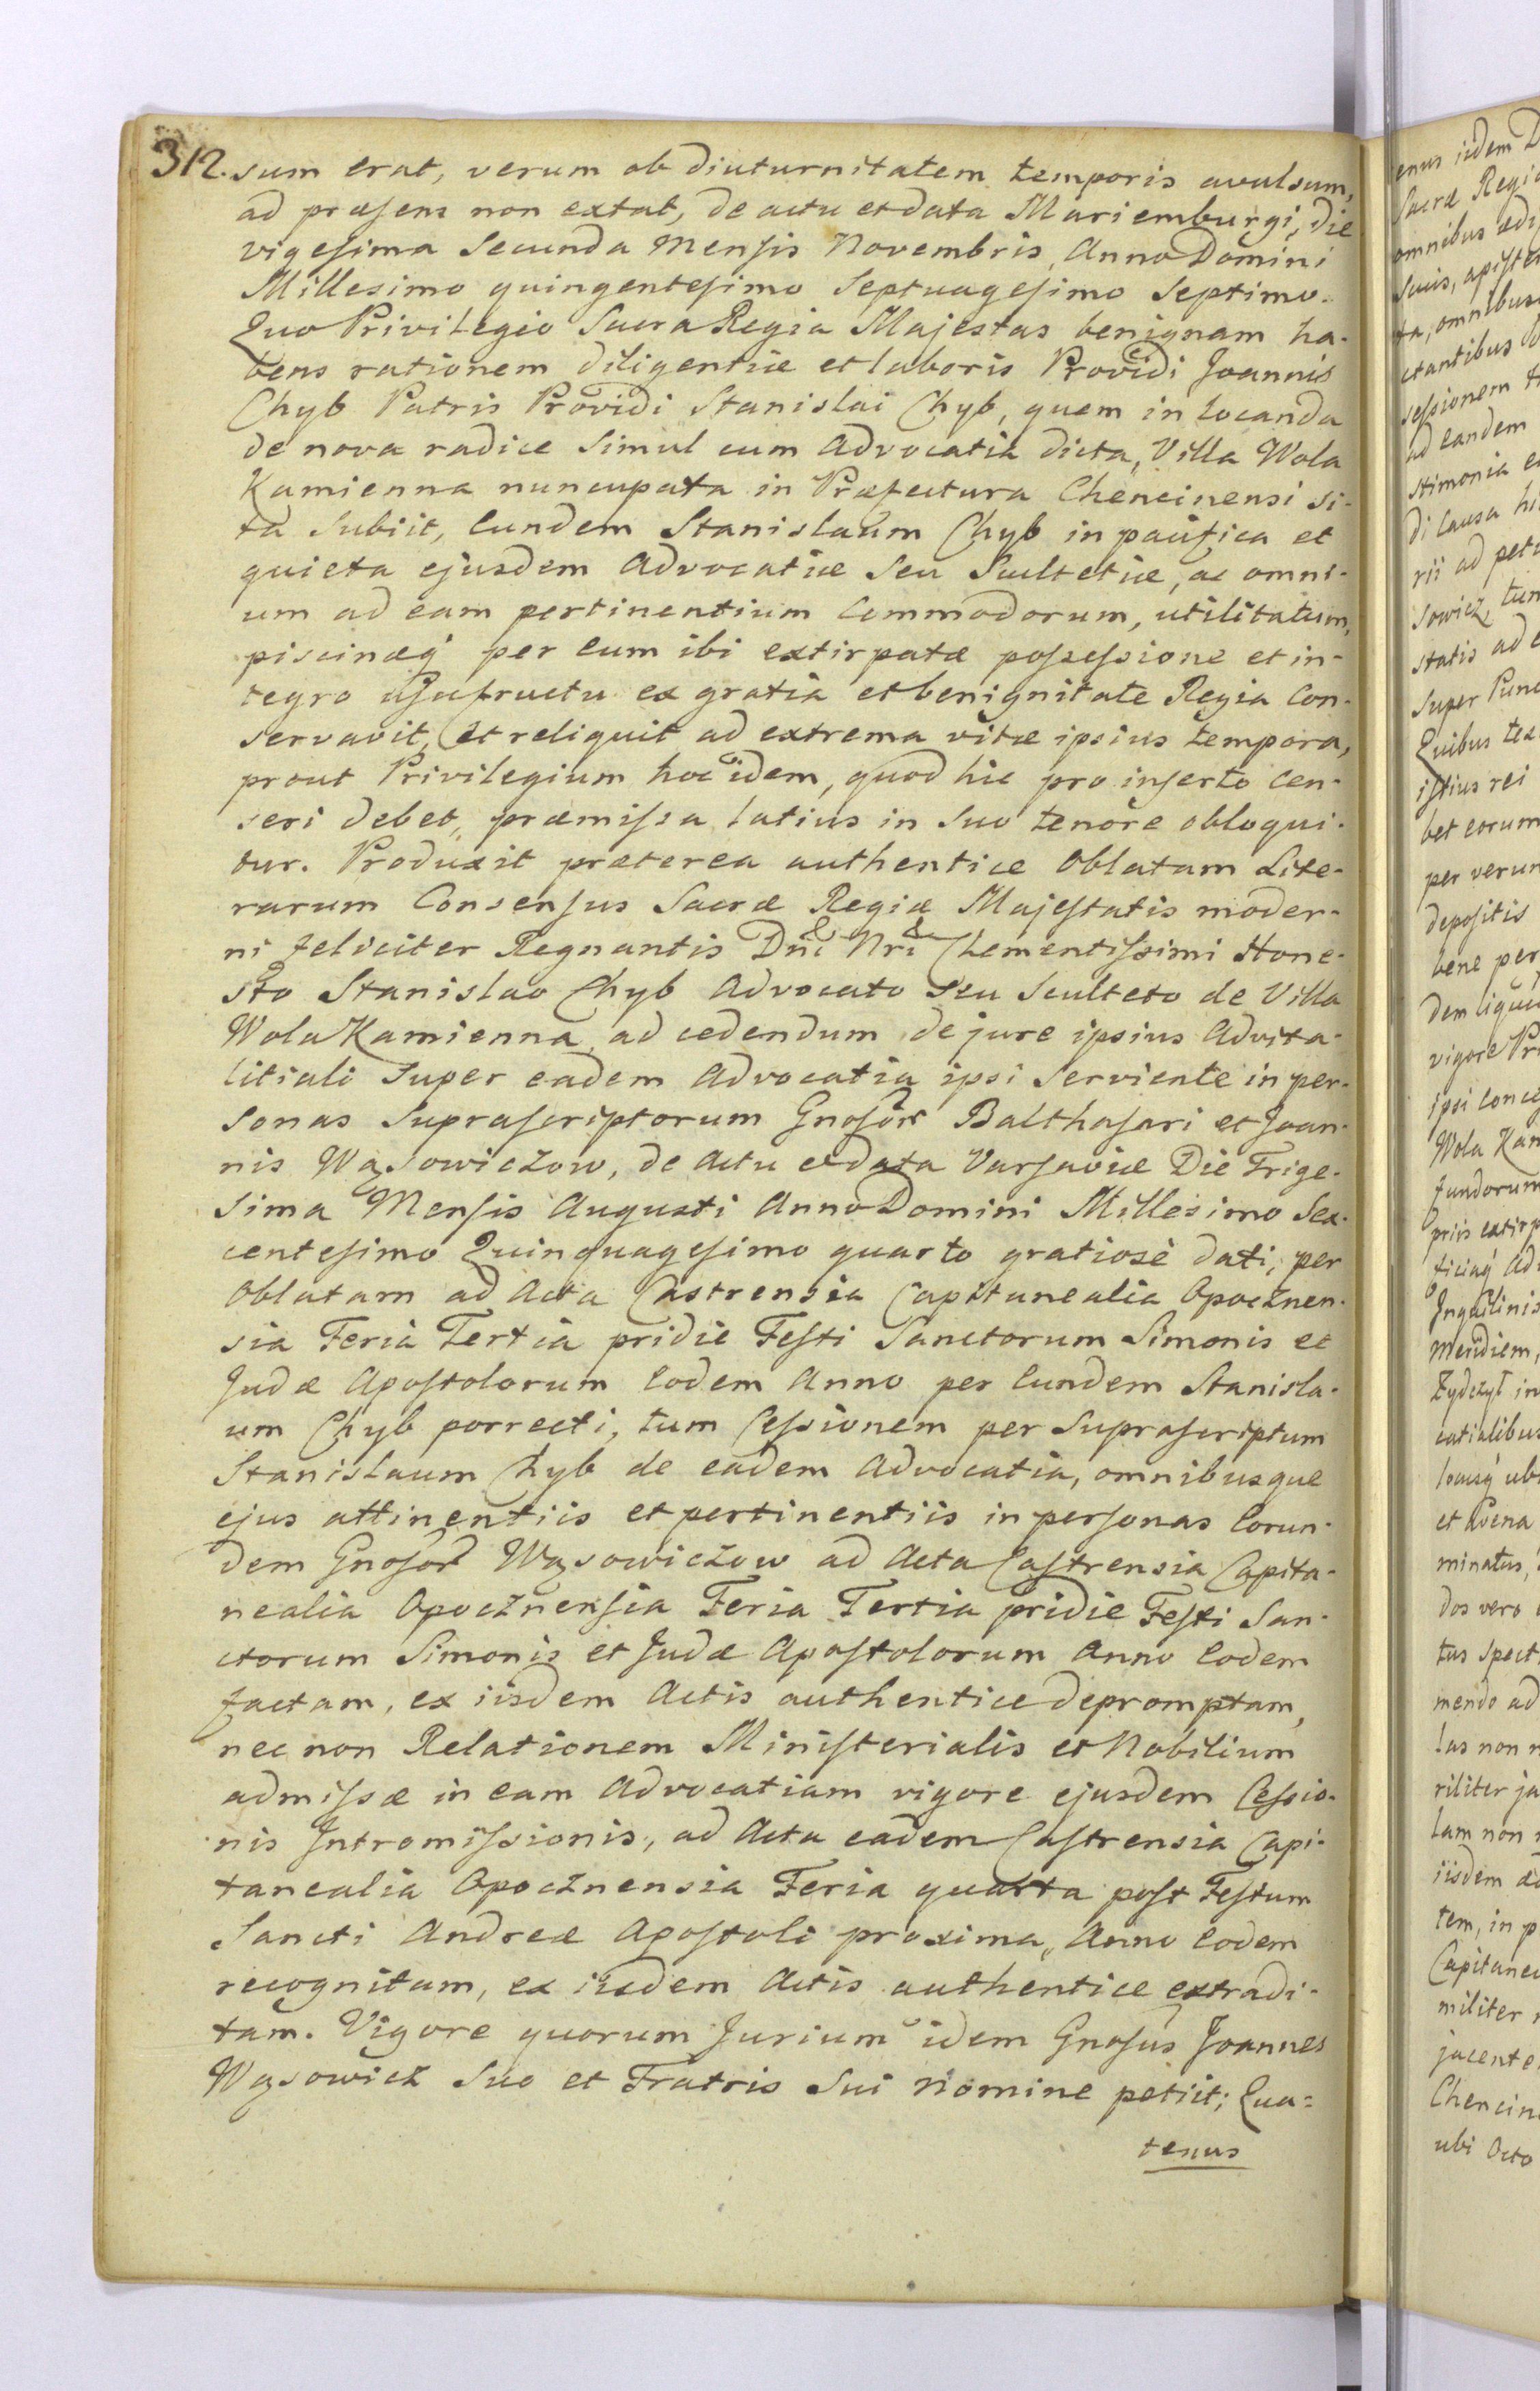 312. sum erat, verum ob diuturnitatem temporis avulsum,
ad præsens non extat, de actu et data Mariemburgi, die
vigesima Secunda Mensis Novembris, Anno Domini
Millesimo quingentesimo Septuagesimo Septimo.
Quo Privilegio Sacra Regia Majestas benignam ha-
bens rationem diligentiæ et laboris Providi Joannis
Chyb Patris Providi Stanislai Chyb, quem in locanda
de nova radice Simul cum Advocatia dicta, Villa Wola
Kamienna nuncupata in Præfectura Chencinensi si-
ta Subiit, Eundem Stanislaum Chyb in paicifica et
quieta ejusdem Advocatiæ Seu Scultetiæ, ac omni-
um ad eam pertinentium Commodorum, utilitatum,
piscinæq́ per Eum ibi extirpatæ possessione et in-
tegro usufructu ex gratia et benignitate Regia Con-
servavit, et reliquit ad extrema vitæ ipsius tempora,
prout Privilegium hoc idem, quod hic pro inserto Cen-
seri debet, præmissa latius in Suo tenore obloqui-
tur. Produxit præterea authentice Oblatam Lite-
rarum Consensus Sacræ Regiæ Majestatis moder-
ni feliciter Regnantis Dñi Nri Clementissimi Hone-
sto Stanislao Chyb Advocato Seu Sculteto de Villa
Wola Kamienna, ad cedendum de jure ipsius Advita-
litiali Super eadem Advocatia ipsi Serviente in per-
sonas Suprascriptorum Gnosor Balthasari et Joan-
nis Wąsowiczow, de Actu et data Varsaviæ Die Trige-
sima Mensis Augusti Anno Domini Millesimo Sex-
centesimo Quinquagesimo quarto gratiosè dati, per
Oblatam ad Acta Castrensia Capitanealia Opocznen-
sia Feria Tertia pridie Festi Sanctorum Simonis et
Judæ Apostolorum Eodem Anno per Eundem Stanisla-
um Chyb porrecti, tum Cessionem per Suprascriptum
Stanislaum Chyb de eadem Advocatia, omnibusque
ejus attinentiis et pertinentiis in personas Eorun-
dem Gnosor Wąsowiczow ad Acta Castrensia Capita-
nealia Opocznensia Feria Tertia pridie Festi San-
ctorum Simonis et Judæ Apostolorum Anno Eodem
factam, ex iisdem Actis authentice depromptam,
nec non Relationem Ministerialis et Nobilium
admissæ in eam Advocatiam vigore ejusdem Cessio-
nis Intromissionis, ad Acta eadem Castrensia Capi-
tanealia Opocznensia Feria quarta post Festum
Sancti Andreæ Apostoli proxima, Anno Eodem
recognitam, ex iisdem Actis authentice extradi-
tam. Vigore quorum Jurium idem Gnosus Joannes
Wąsowicz Suo et Fratris Sui Nomine petiit; Qua=
tenus
enus iidem D
Sacræ Regiæ
omnibus
ctantibus
sessionem
ad eandem
stimonia
di Causa
rii ad
sowicz, tum
statis ad
Super
Quibus
istius rei
bet eorum
per
depositis
bene per
vigore
Wola Kam
fundorum
Inquilinis
meridiem,
et avena
minatus,
dos vero
mendo ad
las non
riliter
lam non
iisdem
tem, in p
Capitane
militer
jacente
Chencin
ubi Octo